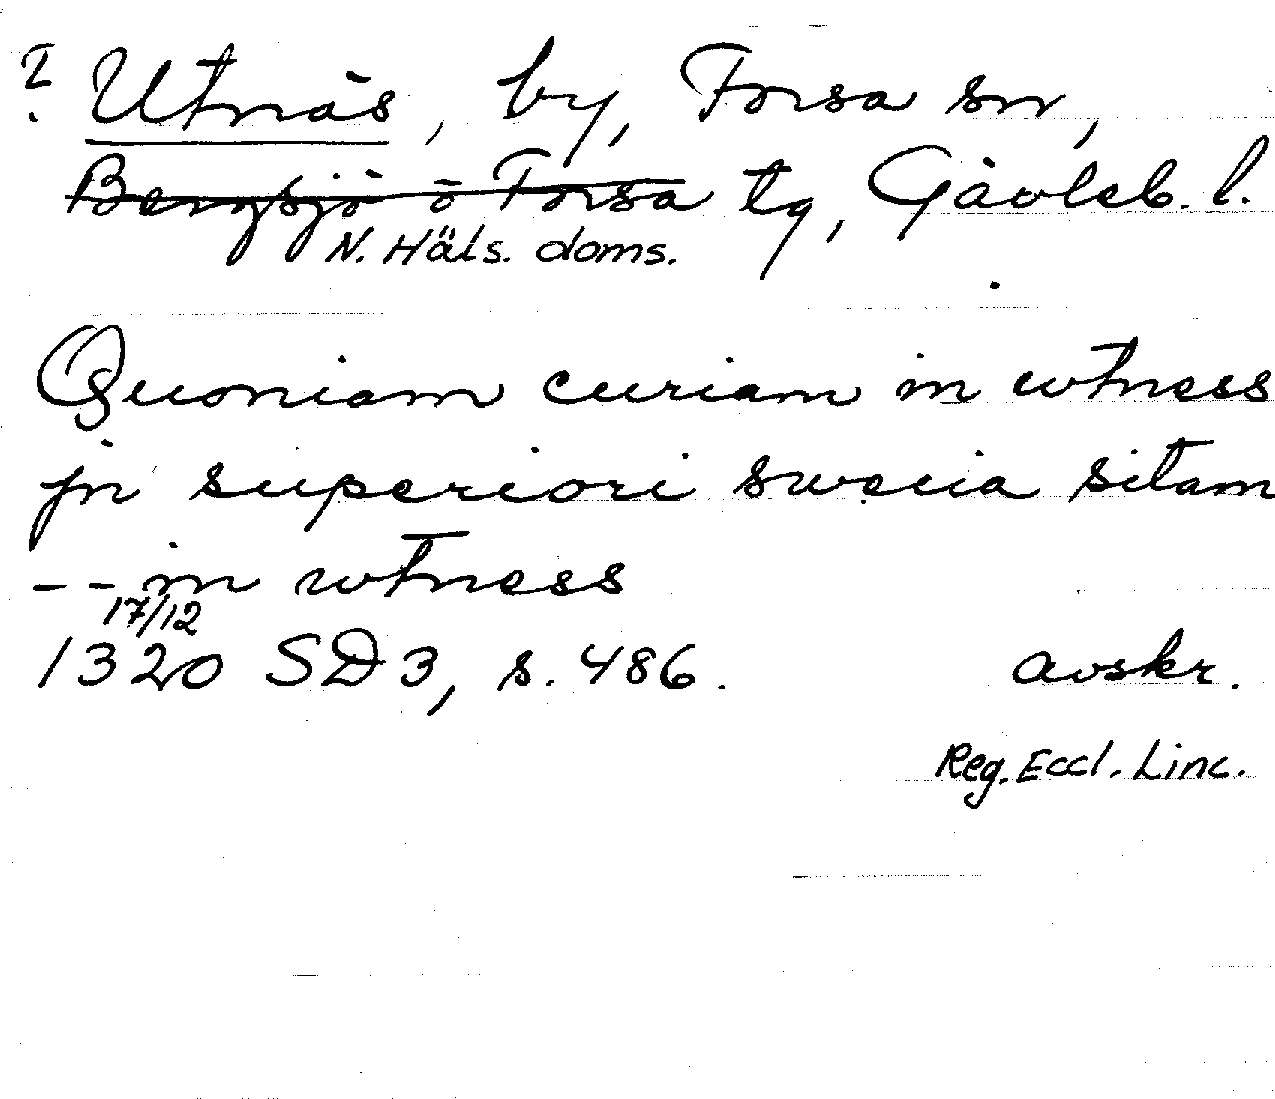 ? Utnäs, by, Forsa sn,
Bergsjö o Forsa tg, Gävleb. l.
N. Häls. doms.
Quoniam curiam in wtness
jn superiori swecia sitam
-- in wtness
17/12
1320 SD 3, s. 486. avskr.
Reg. Eccl. Linc.